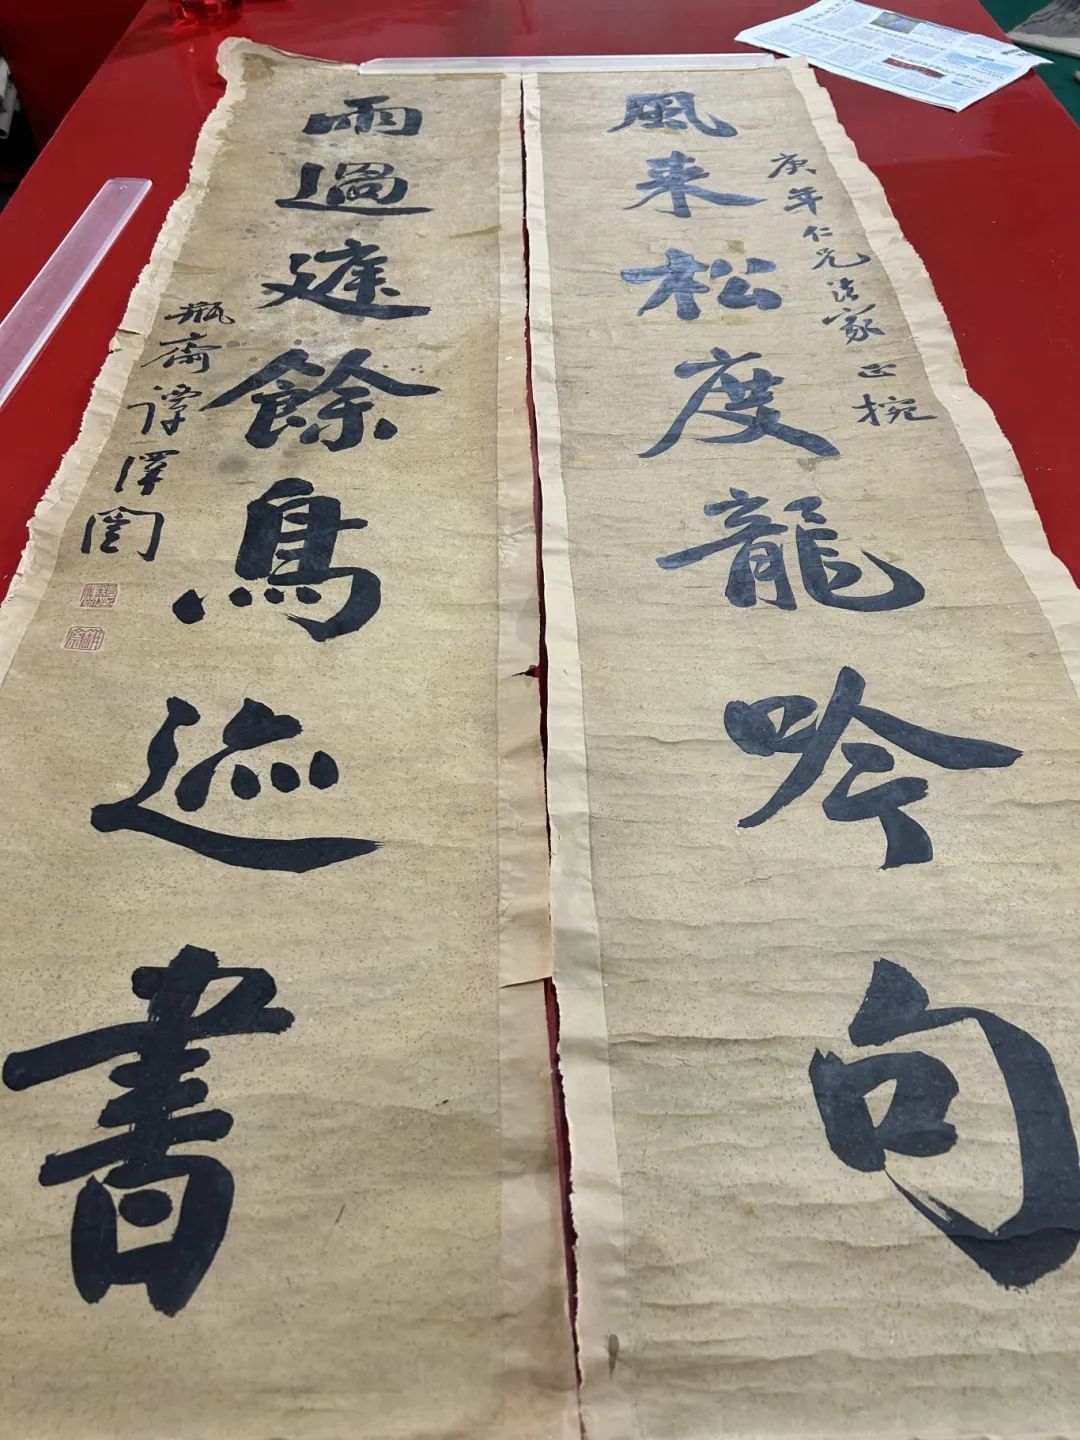 風来松度龍吟句
庚年仁兄法家正捥
雨過庭餘鳥迹書
瓶齋譚澤闓